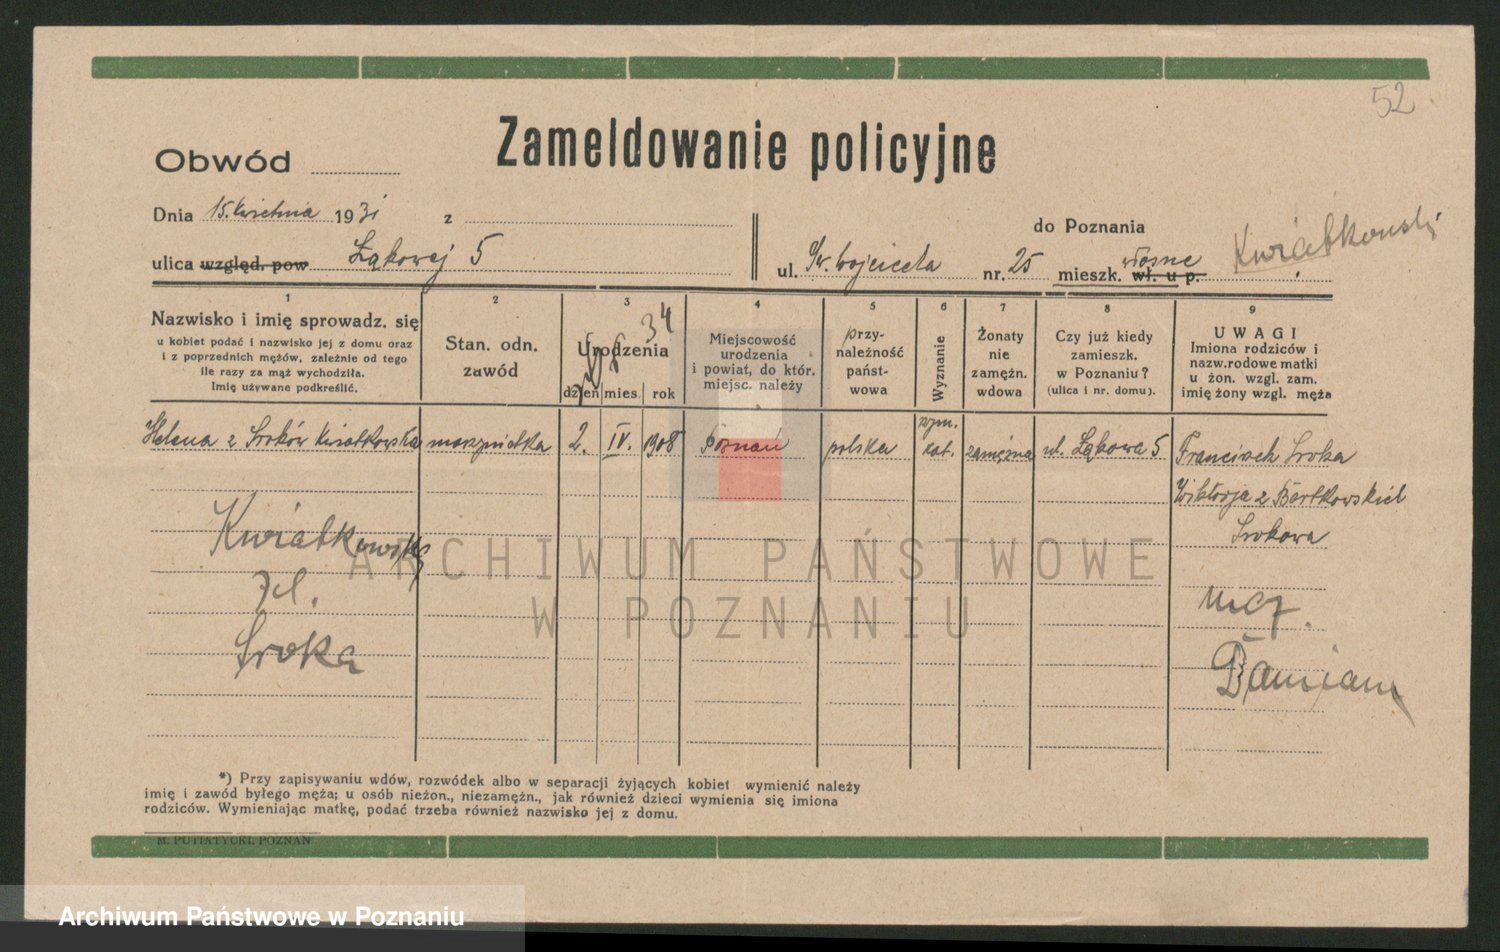 52
Zameldowanie policyjne
Obwód
Dnia 15. kwietnia 1931 z
do Poznania
ulica względ. pow Łąkowej 5
ul. Św. Wojciecha nr. 25 mieszk. wł. u p. własne Kwiatkowski
1 2 3 4 5 6 7 8 9
Nazwisko i imię sprowadz. się
u kobiet podać i nazwisko jej z domu oraz
i z poprzednich mężów, zależnie od tego
ile razy za mąż wychodziła.
Imię używane podkreślić.
Stan. odn.
zawód
34
Urodzenia
dzień mies. rok
Miejscowość
urodzenia
i powiat, do któr.
miejsc. należy
przy-
należność
państ-
wowa
Wyznanie
Żonaty
nie
zamężn.
wdowa
Czy już kiedy
zamieszk.
w Poznaniu?
(ulica i nr. domu).
UWAGI
Imiona rodziców i
nazw.rodowe matki
u żon. wzgl. zam.
imię żony wzgl. męża
Helena z Sroków Kwiatkowska
2. IV. 1908 Poznań polska rzym. kat. zamężna ul. Łąkowa 5
Franciszek Sroka
Wiktorja z Bartkowskich
Srokowa
Kwiatkowska
zd.
Sroka
mąż.
Damian
ARCHIWUM PAŃSTWOWE
W POZNANIU
*) Przy zapisywaniu wdów, rozwódek albo w separacji żyjących kobiet wymienić należy
imię i zawód byłego męża; u osób nieżon., niezamężn., jak również dzieci wymienia się imiona
rodziców. Wymieniając matkę, podać trzeba również nazwisko jej z domu.
M. PUTIATYCKI, POZNAŃ
Archiwum Państwowe w Poznaniu